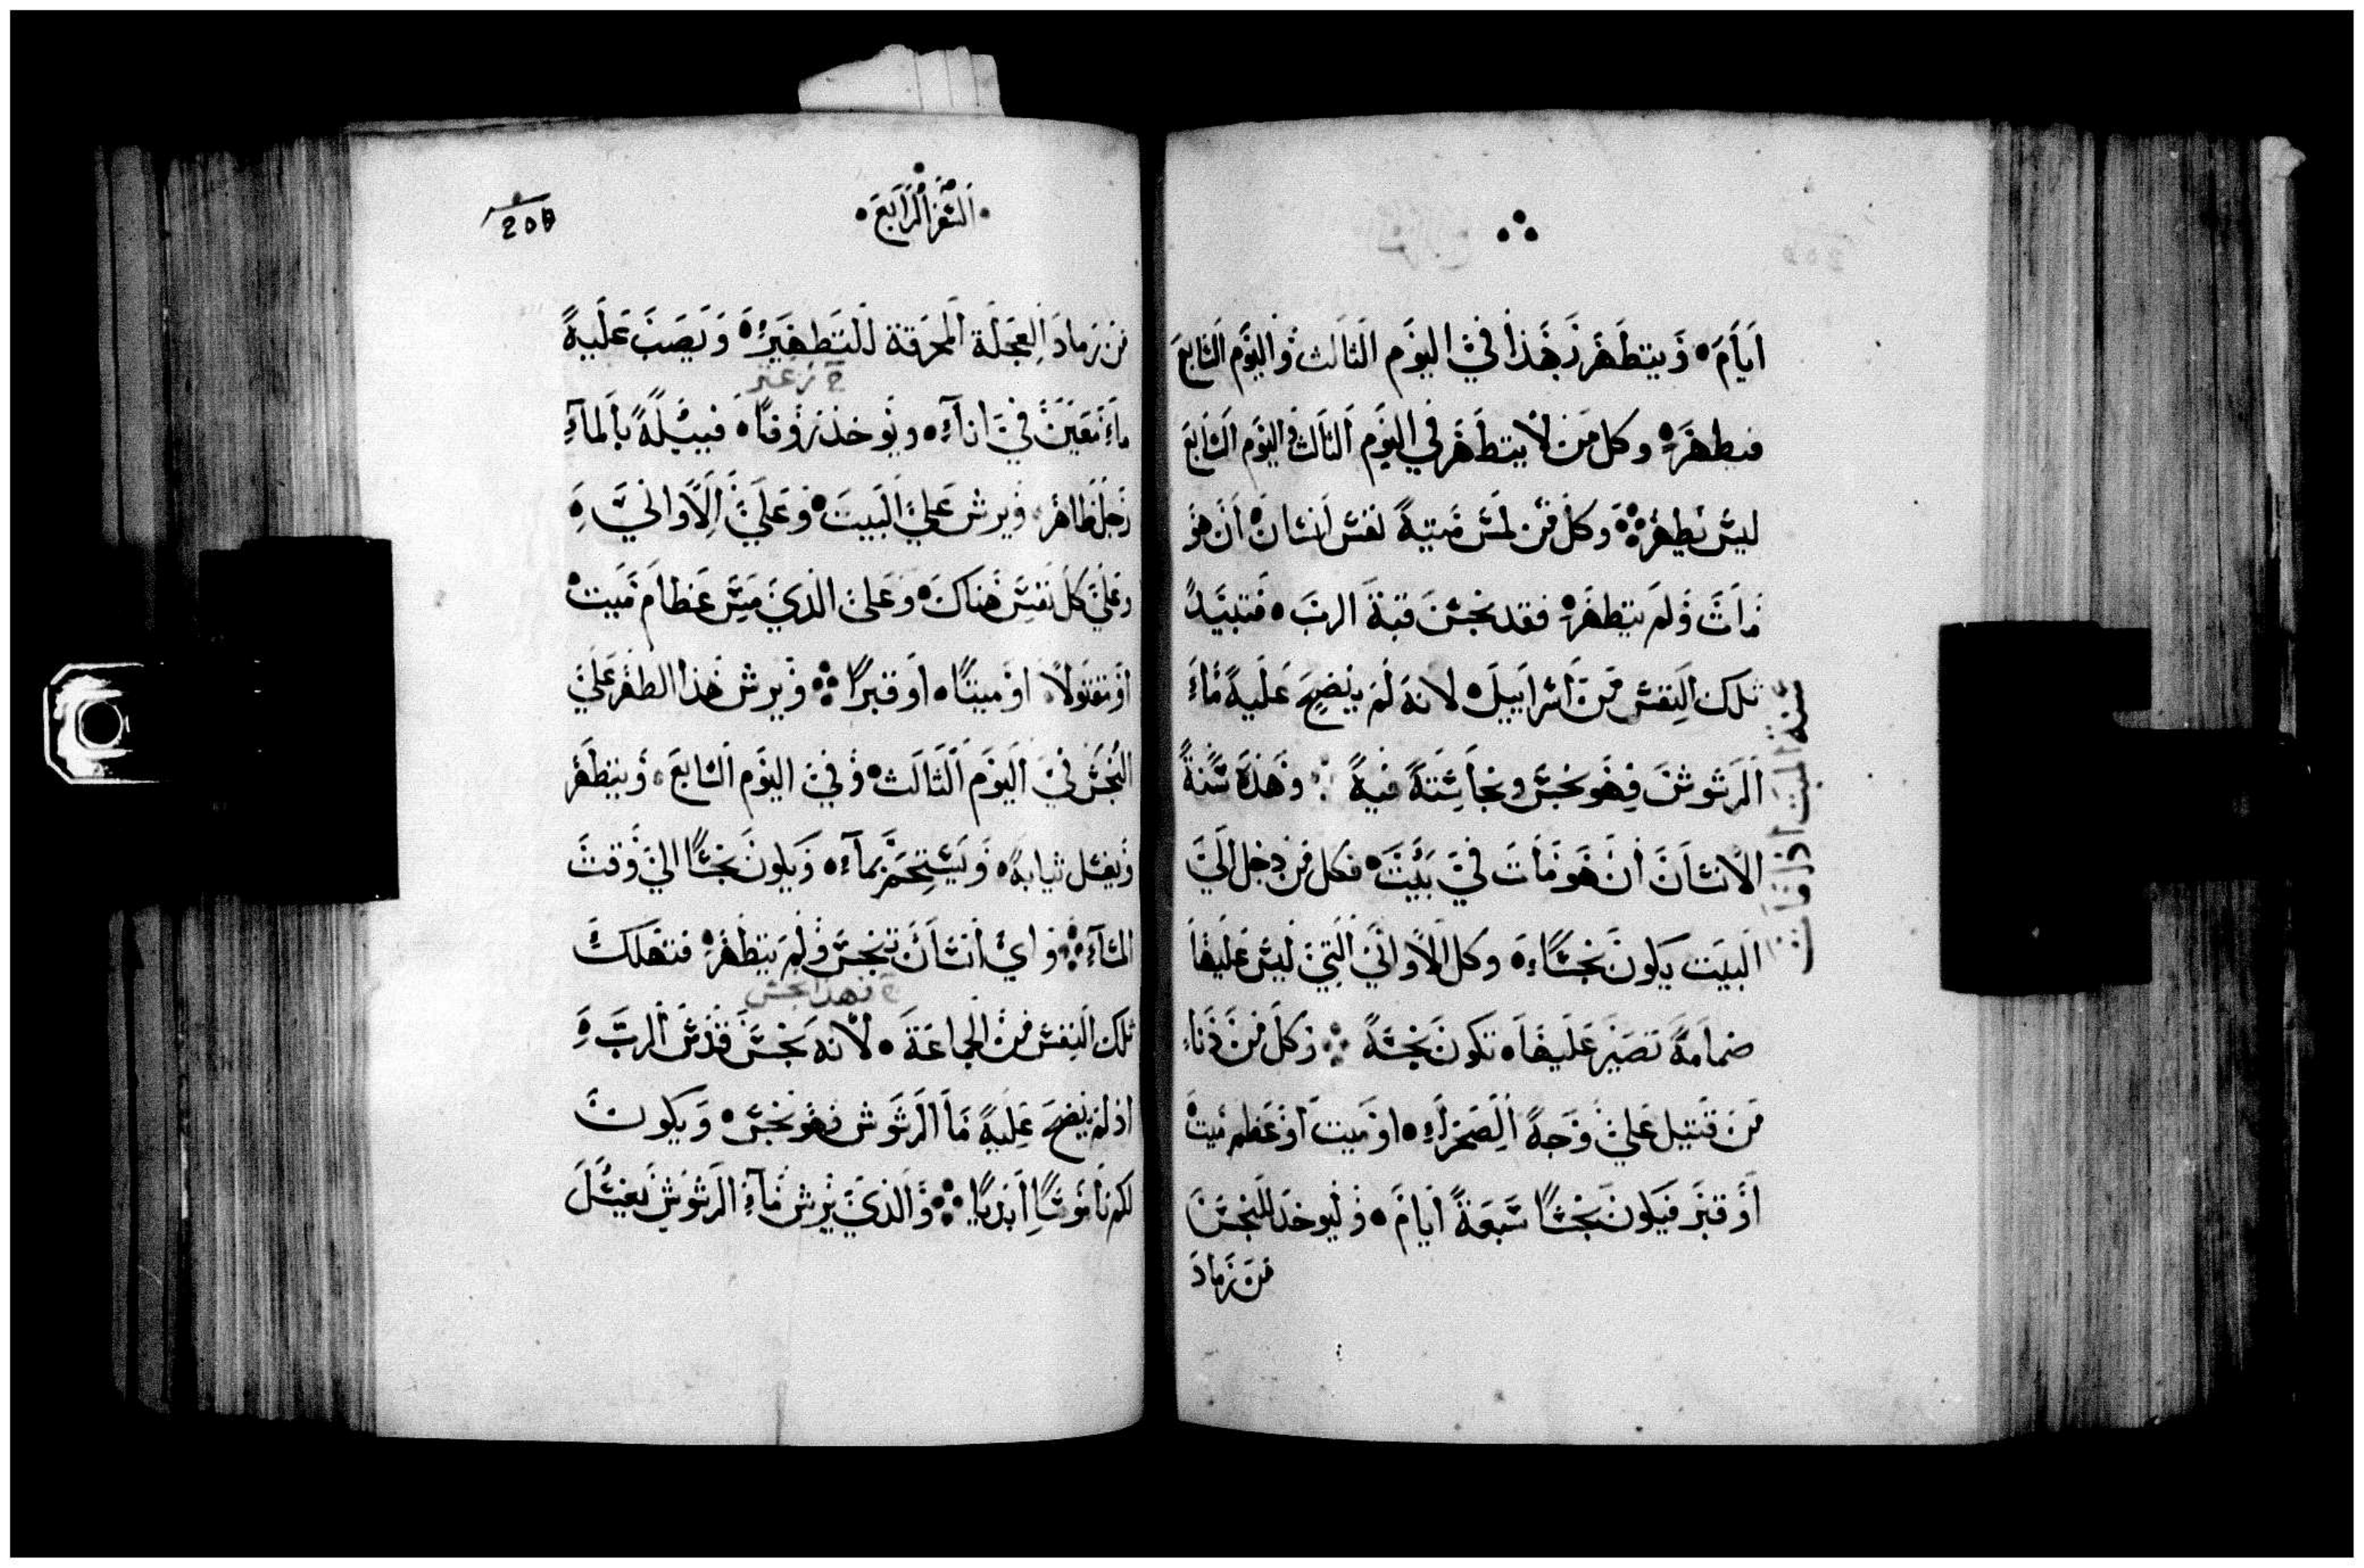 ايام ويتطهر بهذا في اليوم الثالث واليوم السابع
فيطهر وكل من لا يتطهر في اليوم الثالث واليوم السابع
ليس يطهر وكل من لمس ميتة نفس انسان ان هو
مات ولم يتطهر فقد نجس قبة الرب فتبيد
تلك النفس من اسراييل لانه لم ينضح عليه ماء
الرشوش فهو نجس ونجاسته فيه وهذه سنة
الانسان ان هو مات في بيت فكل من دخل الي
البيت يكون نجسا وكل الاواني التي ليس عليها
ضمامة تصير عليها تكون نجسة وكل من دنا
من قتيل علي وجه الصحراء او ميت او عظم ميت
او قبر فيكون نجسا سبعة ايام وليوخد للنجس
من رماد
سنة الميت اذا مات
السفر الرابع
205
من رماد العجلة المحرقة للتطهير ويصب عليه
خ زعتر
ماء معين في اناء ويوخذ زوفا فيبله بالماء
رجل طاهر ويرش علي البيت وعلي الاواني
وعلي كل نفس هناك وعلي الذي مس عظام ميت
او مقتولا او ميتا او قبرا ويرش هذا الطهر علي
النجس في اليوم الثالث وفي اليوم السابع ويتطهر
ويغسل ثيابه ويستحم بماء ويكون نجسا الي وقت
المساء واي انسان تنجس ولم يتطهر فتهلك
تلك النفس من الجماعة لانه نجس قدس الرب
اذ لم ينضح عليه ما الرشوش فهو نجس ويكون
لكم ناموسا ابديا والذي يرش ماء الرشوش يغسل